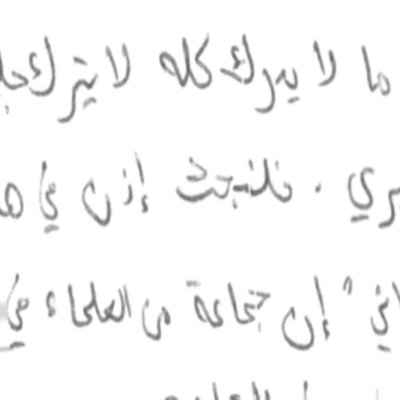 ما لا يدرك كله لا يترك جل
ري . فلنبحث إذن في ه
اني " إن جماعة من العلماء في